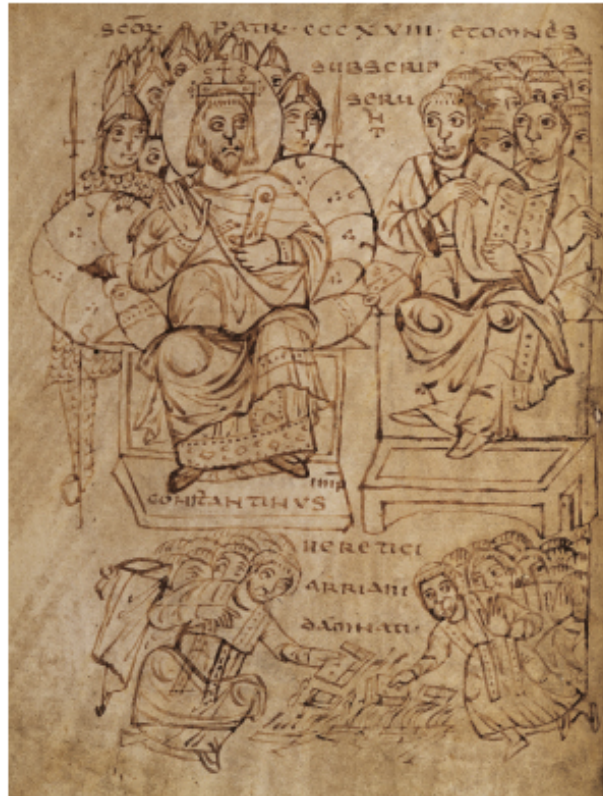 SCŌR PATR · CCCXVIII · ET OMNES
SUBSCRIP
SERU
NT
IMP
CONSTANTINUS
HERETICI
ARRIANI
DAMNATI ·